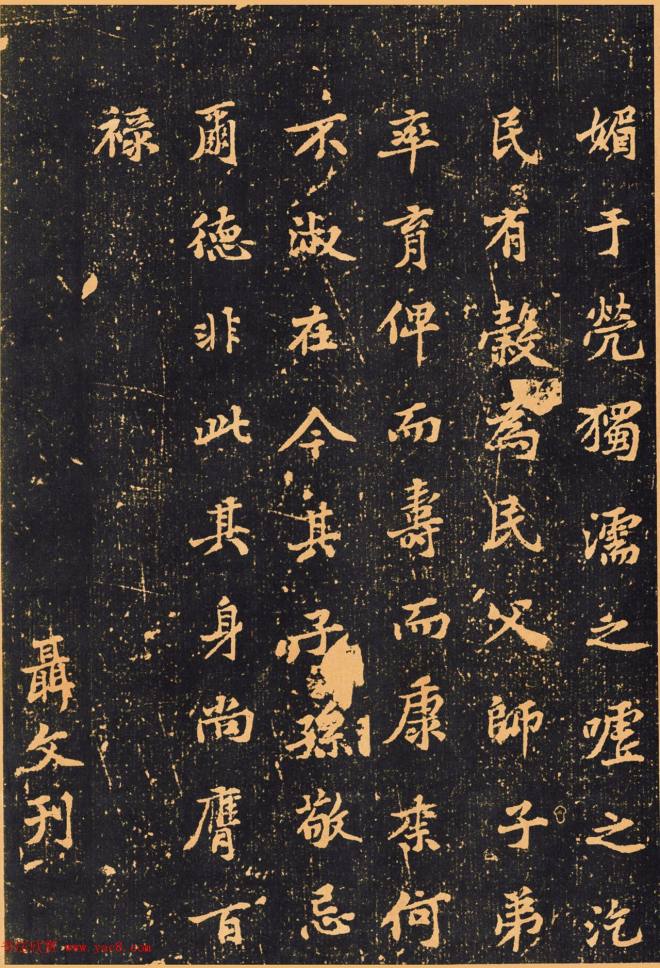 媚于煢獨濡之嘘之汔
民有穀為民父師子弟
率育俾而壽而康柰何
不淑在今其子孫敬忌
爾德非此其身尚膺百
祿
聶文刊
www.yac8.com